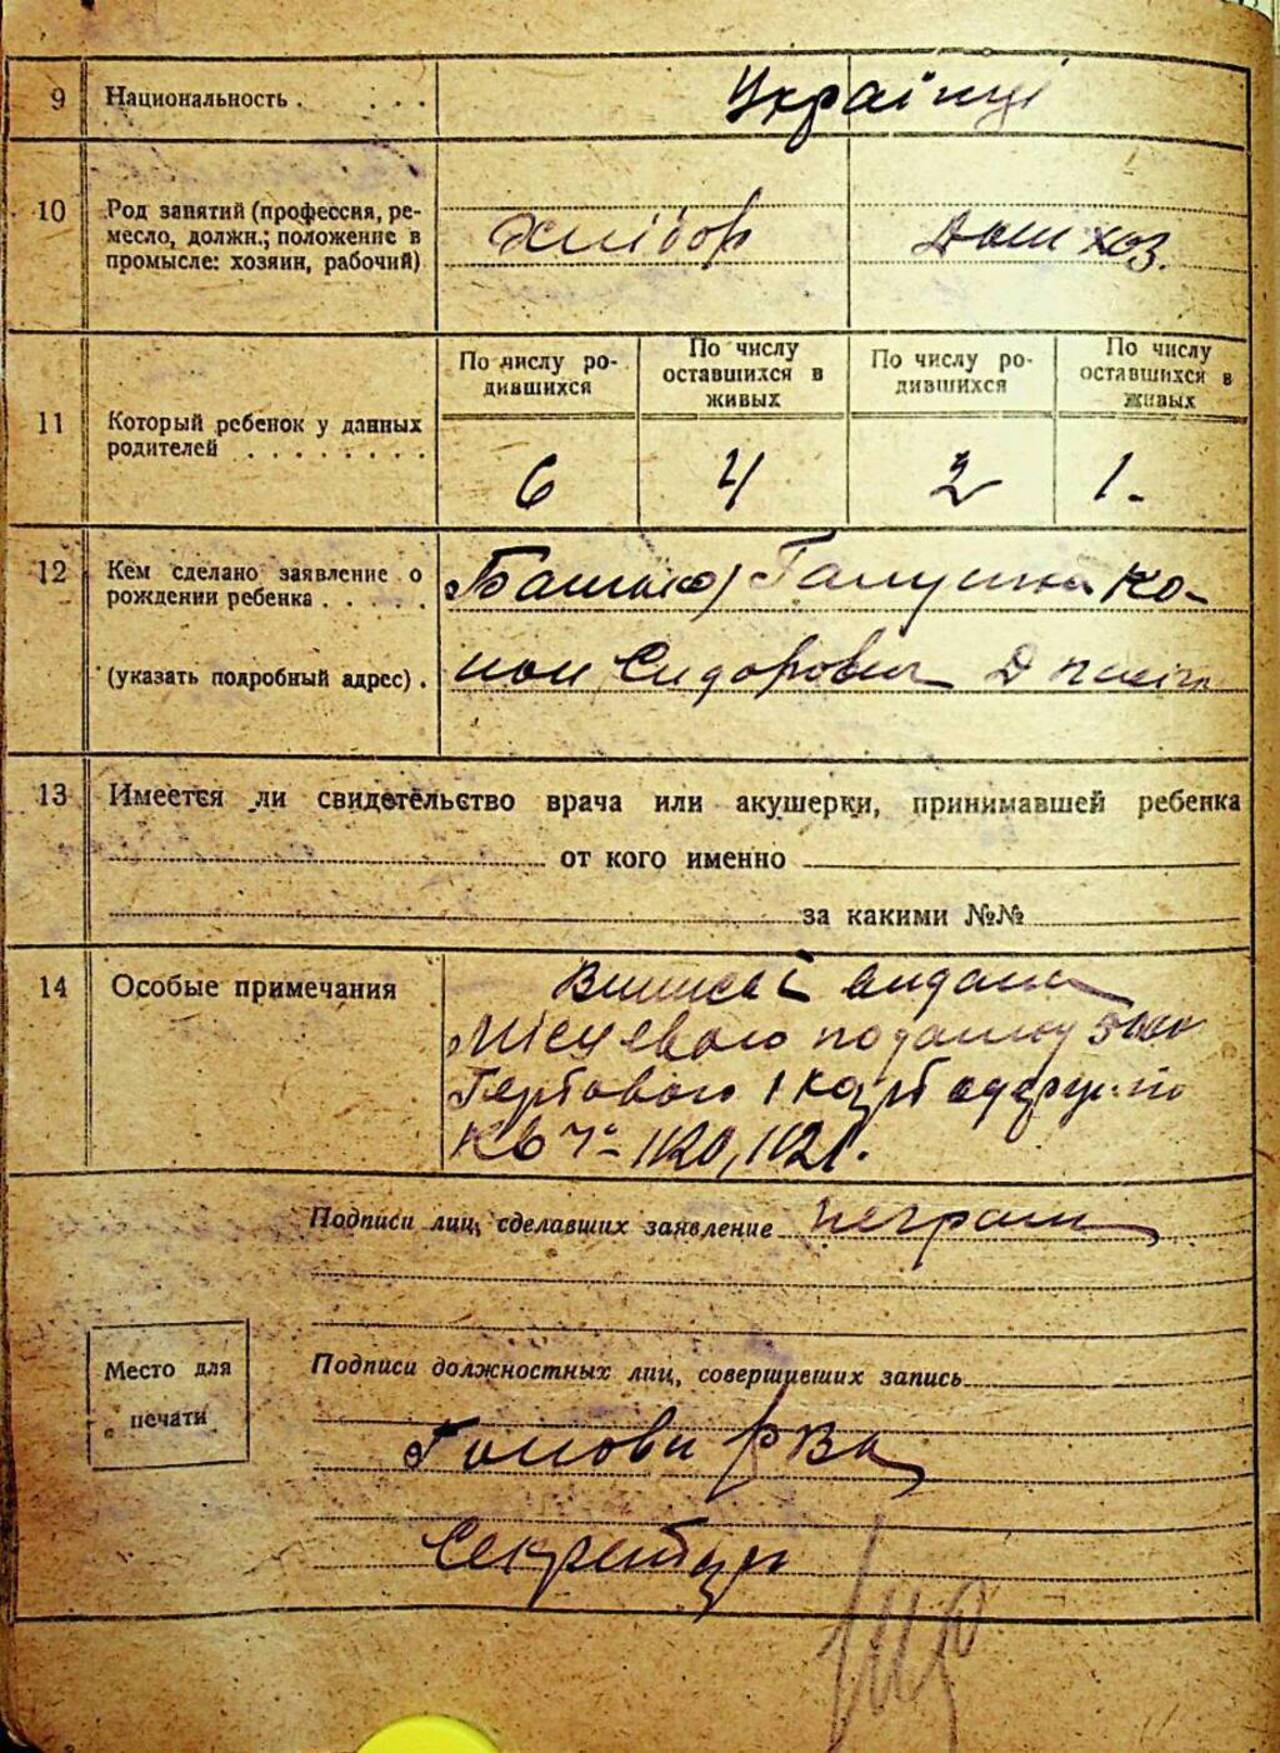 9 Национальность . . . . Українці
10 Род занятий (профессия, ре-
месло, должн.; положение в
промысле: хозяин, рабочий)
Хлібор Дом хоз.
11 Который ребенок у данных
родителей . . . . . . . .
По числу ро-
дившихся
По числу
оставшихся в
живых
По числу ро-
дившихся
По числу
оставшихся в
живых
6 4 2 1-
12 Кем сделано заявление о
рождении ребенка . . . . .
(указать подробный адрес) .
Батько Галушка Ко-
нон Сидорович
13 Имеется ли свидетельство врача или акушерки, принимавшей ребенка
от кого именно
за какими №№
14 Особые примечания
видана
Місцевого податку 5
Гербового 1 карб одержано
Кв 1120, 1121.
Подписи лиц, сделавших заявление неграм
Место для
печати
Подписи должностных лиц, совершивших запись
Голова РВК
Секретар